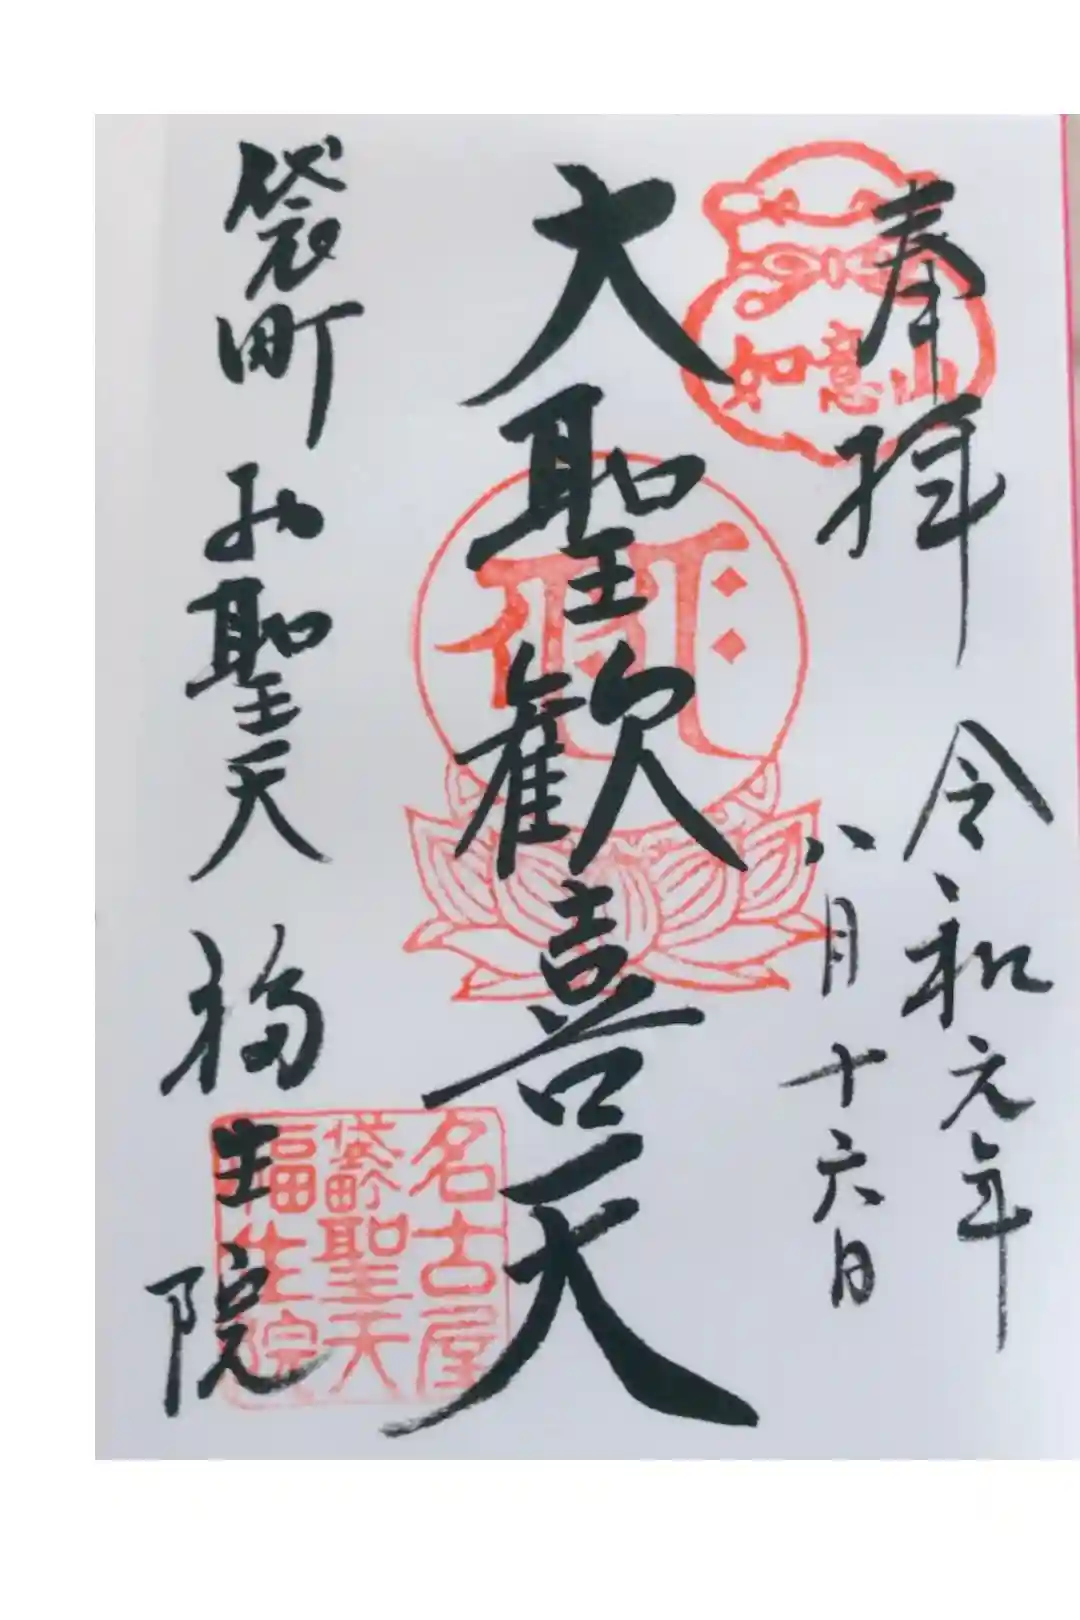 奉拝
如意山
令和元年
八月十六日
大聖歓喜天
袋町お聖天
福生院
名古屋
袋町聖天
福生院